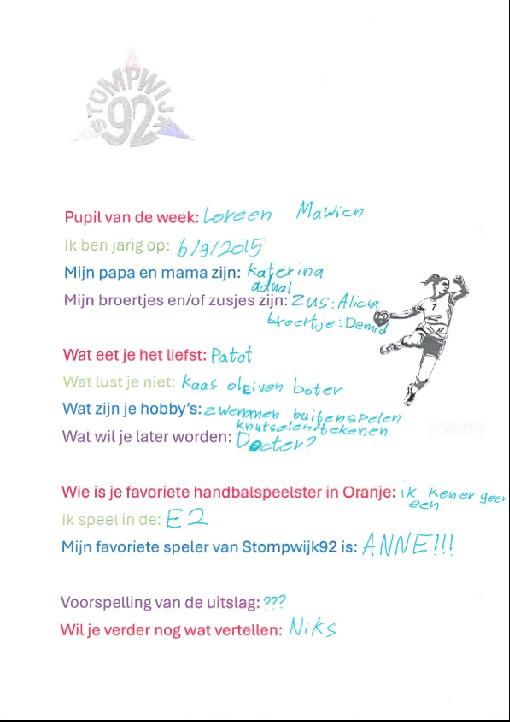 STOMPWIJK
92
Pupil van de week: Loreen Mawien
Ik ben jarig op: 6/9/2015
Mijn papa en mama zijn: katerina
Mijn broertjes en/of zusjes zijn: zus: Alicia
broertje: Demid
Wat eet je het liefst: Patat
Wat lust je niet: kaas olEiven boter
Wat zijn je hobby's: zwemmen buitenspelen
knutselen/tekenen
Wat wil je later worden: Docter?
Wie is je favoriete handbalspeelster in Oranje: ik kener geer
een
Ik speel in de: E2
Mijn favoriete speler van Stompwijk92 is: ANNE!!!
Voorspelling van de uitslag: ???
Wil je verder nog wat vertellen: Niks